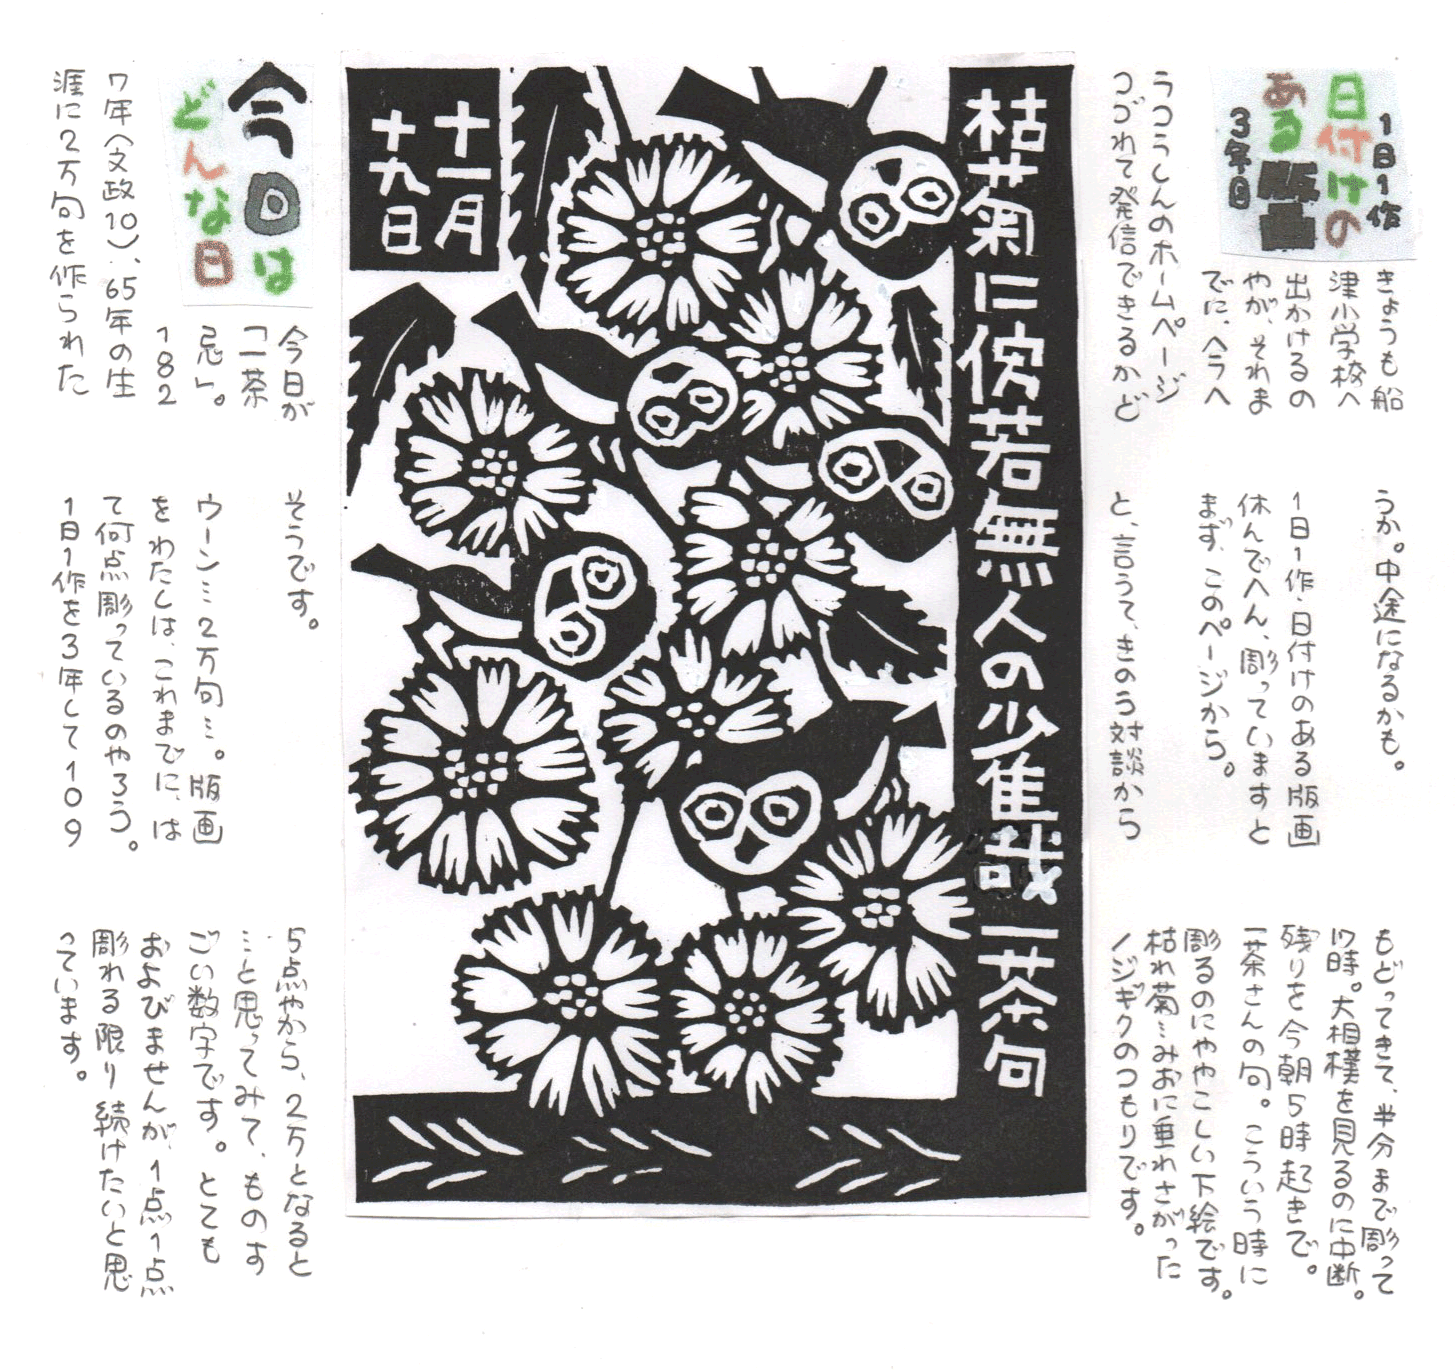 1日1作
日付けの
ある版画
3年目
きょうも船
津小学校へ
出かけるの
やが、それま
でに、ヘラヘ
うこうしんのホームページ
つづれて発信できるかど
うか。中途になるかも。
1日1作・日付けのある版画
休んでへん、彫っていますと
まず、このページから。
と、言うて、きのう対談から
もどってきて、半分まで彫って
17時。大相撲を見るのに中断。
残りを今朝5時起きで。
一茶さんの句。こういう時に
彫るのにややこしい下絵です。
枯れ菊…みおに垂れさがった
ノジギクのつもりです。
枯菊に傍若無人の雀哉 一茶句
十一月
十九日
今日は
どんな日
今日が
「一茶
忌」。
182
7年(文政10)、65年の生
涯に2万句を作られた
そうです。
ウーン…2万句…。版画
をわたしは、これまでに、は
て何点彫っているのやろう。
1日1作を3年して109
5点やから、2万となると
…と思ってみて、ものす
ごい数字です。とても
およびませんが、1点1点
彫れる限り続けたいと思
っています。